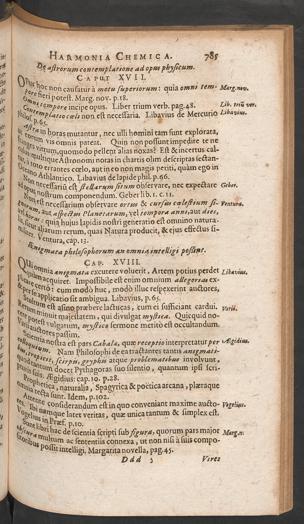 HARMONIA CHEMICA. 785
De astrorum contemplatione ad opus physicum.
CAPUT XVII.
Opus hoc non causatur à motu superiorum: quia omni tem-
pore fieri potest. Marg. nov. p. 18. Marg. nov.
Omni tempore incipe opus. Liber trium verb. pag. 48. Lib. triū ver.
Contemplatio cœli non est necessaria. Libavius de Mercurio Libavius.
Philos. p. 65.
Astra in horas mutantur, nec ulli homini tam sunt explorata,
vim omnis pateat. Quin non possunt impedire te ne
vitrum, quo modo pellem alias noxas? Est & incertus cal-
Astronomi noras in chartis olim descriptas
errantes cœlo, aut in eo non magis periti, quàm ego in
Oceano Atlantico. Libavius de lapide phil. p. 66.
necessarium est stellarum situm observare, nec expectare Geber.
ad opus nostrum componendum. Geber lib. 1. c. 11.
Non est necessarium observare ortus & cursus cœlestium Ventura.
aut aspectus Planetarum, vel tempora anni, aut dies,
quia hujus lapidis nostri generatio est omnino natura-
aliarum rerum, quas Natura producit, & ejus effectus
Ventura, cap. 13.
Ænigmata philosophorum an omnia intelligi possint.
CAP. XVIII.
Quis omnia ænigmata excutere voluerit, Artem potius perdet Libavius.
quàm acquiret. Impossibile est enim omnium allegoriarum ex-
certò: cum modò huc, modò illuc respicerint auctores,
applicatio sit ambigua. Libavius, p. 65.
est asino præbere lactucas, cum ei sufficiant cardui. Varii.
minuit majestatem, qui divulgat mystica. Quicquid no-
vulgarum, mystica sermone meritò est occultandum.
Varii auctores passim.
Scientia nostra est pars Cabalæ, quæ receptio interpretatur per Ægidius.
Nam Philosophi eam tractantes tantis ænigmati-
bus, tropicis, scirpis, gryphis atque problematibus involvunt,
docet Pythagoras suo silentio, quantum ipsi scri-
suis. Ægidius: cap. 10. p. 28.
Prophetica, naturalia, Spagyrica & poëtica arcana, pleraque
nosta sunt. Idem, p. 102.
Attentè considerandum est in quo conveniant maximè aucto- Vogelius.
Ibi namque latet veritas, quæ unica tantum & simplex est.
Vogelius in Præf. p. 10.
libri hac de scientia scripti sub figura, quorum pars major Marga.
multum ac sententiis connexa, ut non nisi à suis compo-
sitoribus possit intelligi. Margarita novella, pag. 45.
Ddd 3 Virtz